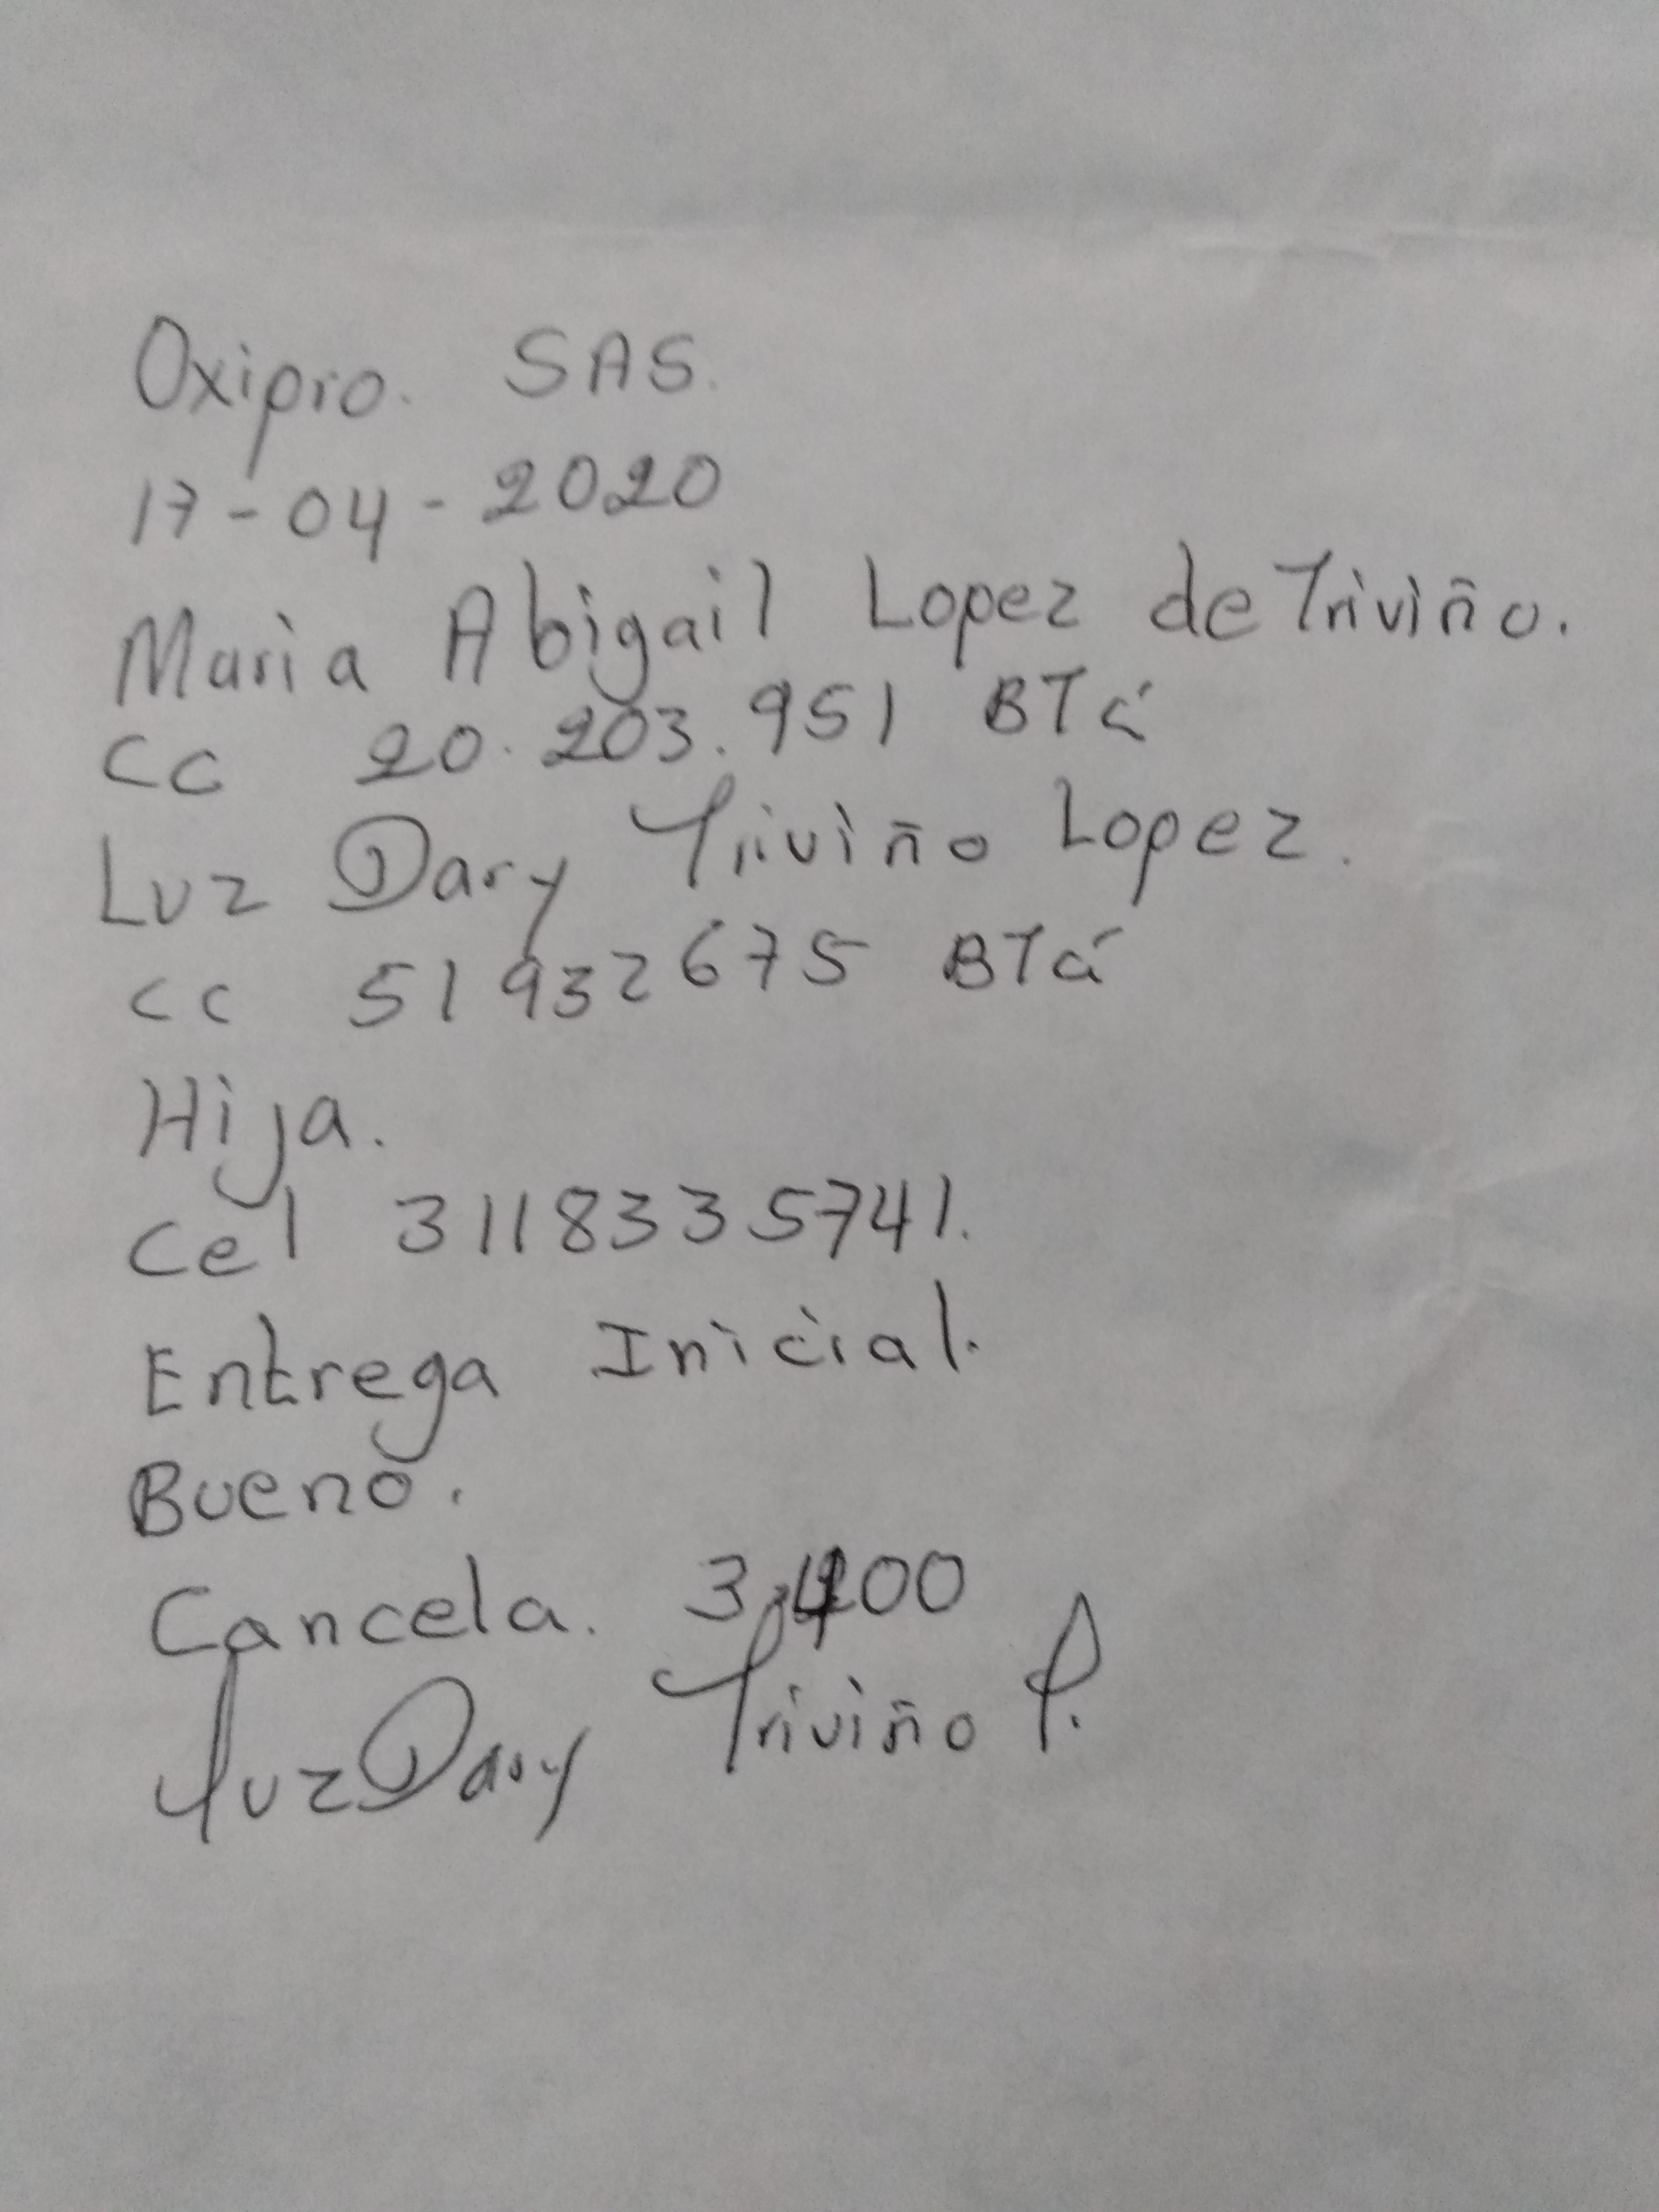 Oxipro. SAS.
17-04-2020
Maria Abigail Lopez de Triviño.
CC 20.203.951 BTá
Luz Dary Triviño Lopez.
CC 51932675 BTá
Hija.
Cel 3118335741.
Entrega Inicial.
Bueno.
Cancela. 3.400
Luz Dary Triviño P.